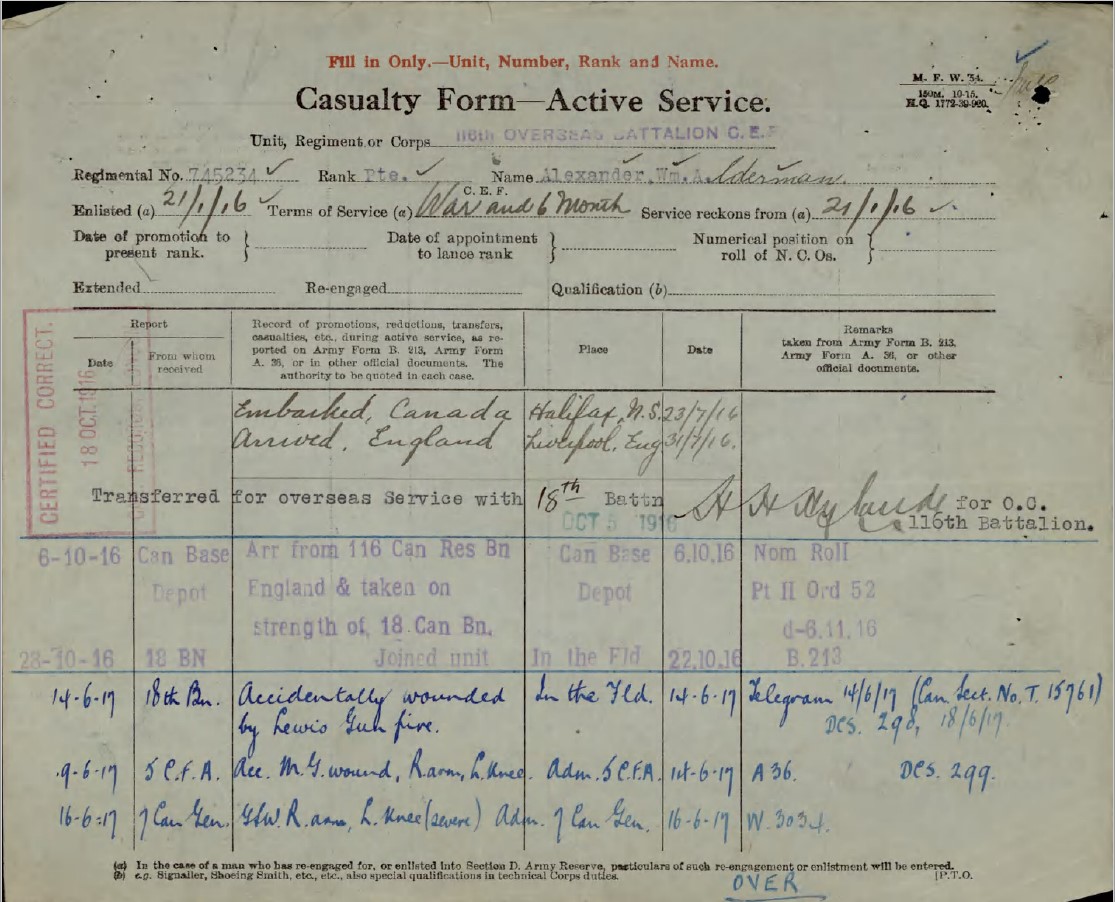 Fill in Only.—Unit, Number, Rank and Name.
M. F. W. 54.
150M. 10-15.
H.Q. 1772-39-920.
Casualty Form—Active Service.
Unit, Regiment or Corps 116th OVERSEAS BATTALION C.E.F.
Regimental No. 745234 Rank Pte. Name Alexander, Wm. Alderman.
C. E. F.
Enlisted (a) 21/1/16 Terms of Service (a) War and 6 Month Service reckons from (a) 21/1/16
Date of promotion to present rank. } Date of appointment to lance rank } Numerical position on roll of N. C. Os. }
Extended Re-engaged Qualification (b)
Report
Date
From whom received
Record of promotions, reductions, transfers,
casualties, etc., during active service, as re-
ported on Army Form B. 213, Army Form
A. 36, or in other official documents. The
authority to be quoted in each case.
Place
Date
Remarks
taken from Army Form B. 213,
Army Form A. 36, or other
official documents.
CERTIFIED CORRECT.
18 OCT. 1916
Embarked, Canada Halifax, N.S. 23/7/16
Arrived, England Liverpool, Eng 31/7/16.
Transferred for overseas Service with 18th Battn
OCT 5 1916
for O.C.
116th Battalion.
6-10-16 Can Base Arr from 116 Can Res Bn Can Base 6.10.16 Nom Roll
Depot England & taken on Depot Pt II Ord 52
strength of, 18 Can Bn. d-6.11.16
28-10-16 18 BN Joined unit In the Fld 22.10.16 B.213
14-6-17 18th Bn. Accidentally wounded In the Fld. 14-6-17 Telegram 14/6/17 (Can. Sect. No. T. 15761)
by Lewis Gun fire. DCS. 298, 18/6/17.
9-6-17 5 C.F.A. Acc. M.G. wound, R. arm, L. Knee. Adm. 5 C.F.A. 14-6-17 A 36. DCS. 299.
16-6-17 7 Can Gen. GSW. R. arm, L. Knee (severe) Adm. 7 Can Gen. 16-6-17 W. 3034.
(a) In the case of a man who has re-engaged for, or enlisted into Section D. Army Reserve, particulars of such re-engagement or enlistment will be entered.
(b) e.g. Signaller, Shoeing Smith, etc., etc., also special qualifications in technical Corps duties. [P.T.O.
OVER